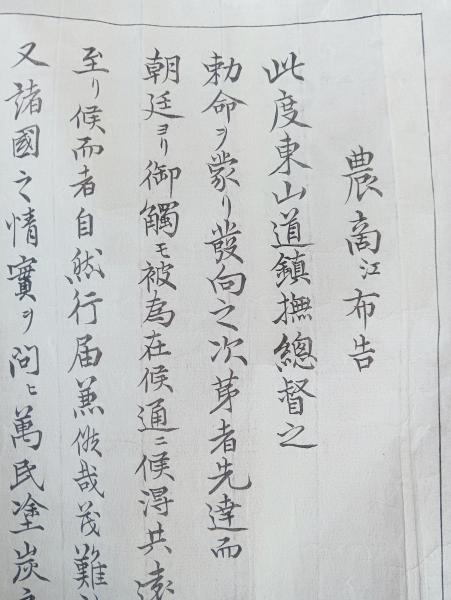 農商江布告
此度東山道鎮撫總督之
勅命ヲ蒙リ發向之次第者先達而
朝廷ヨリ御觸モ被為在候通ニ候得共遠
至リ候而者自然行届兼候哉茂難
又諸國之情實ヲ問ヒ萬民塗炭之